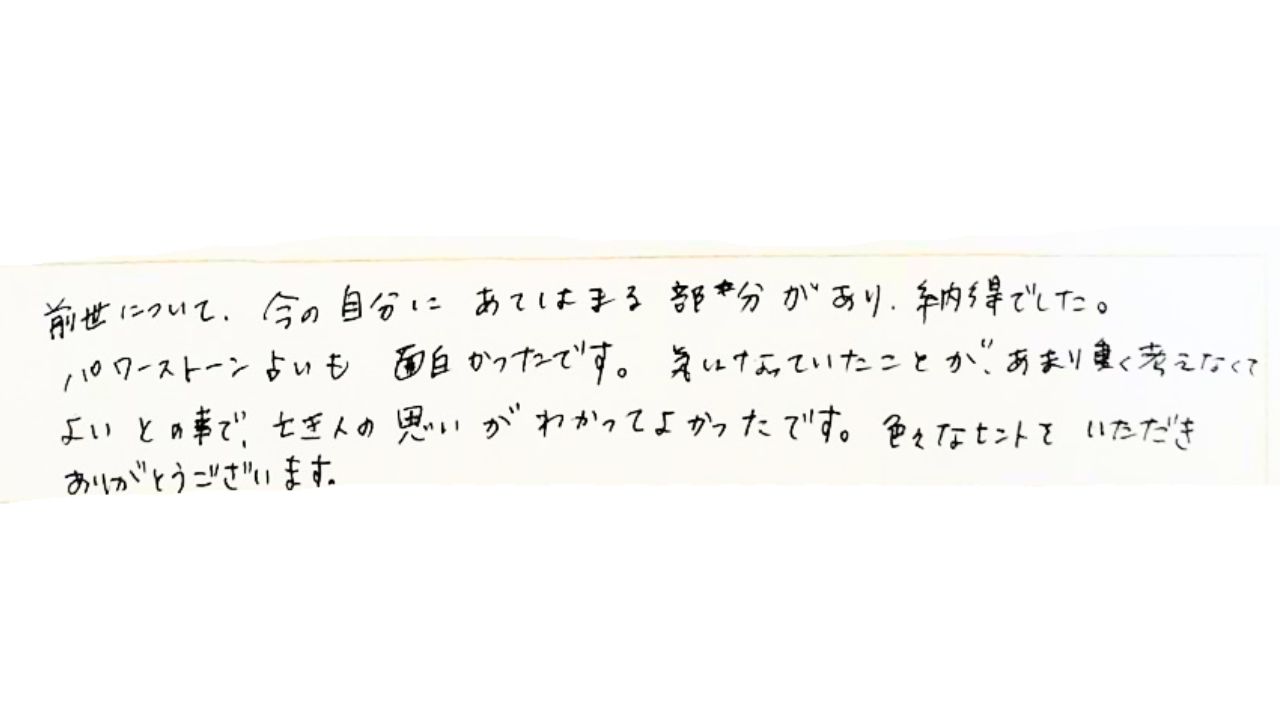 前世について、今の自分に あてはまる 部分が あり、納得でした。
パワーストーン占いも 面白かったです。気になっていたことが、あまり重く考えなくて
よい との事で、亡き人の 思いが わかってよかったです。色々なヒントを いただき
ありがとうございます。